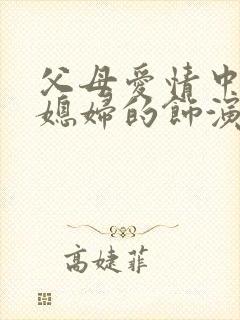 父母爱情中
媳妇的饰演
高婕菲